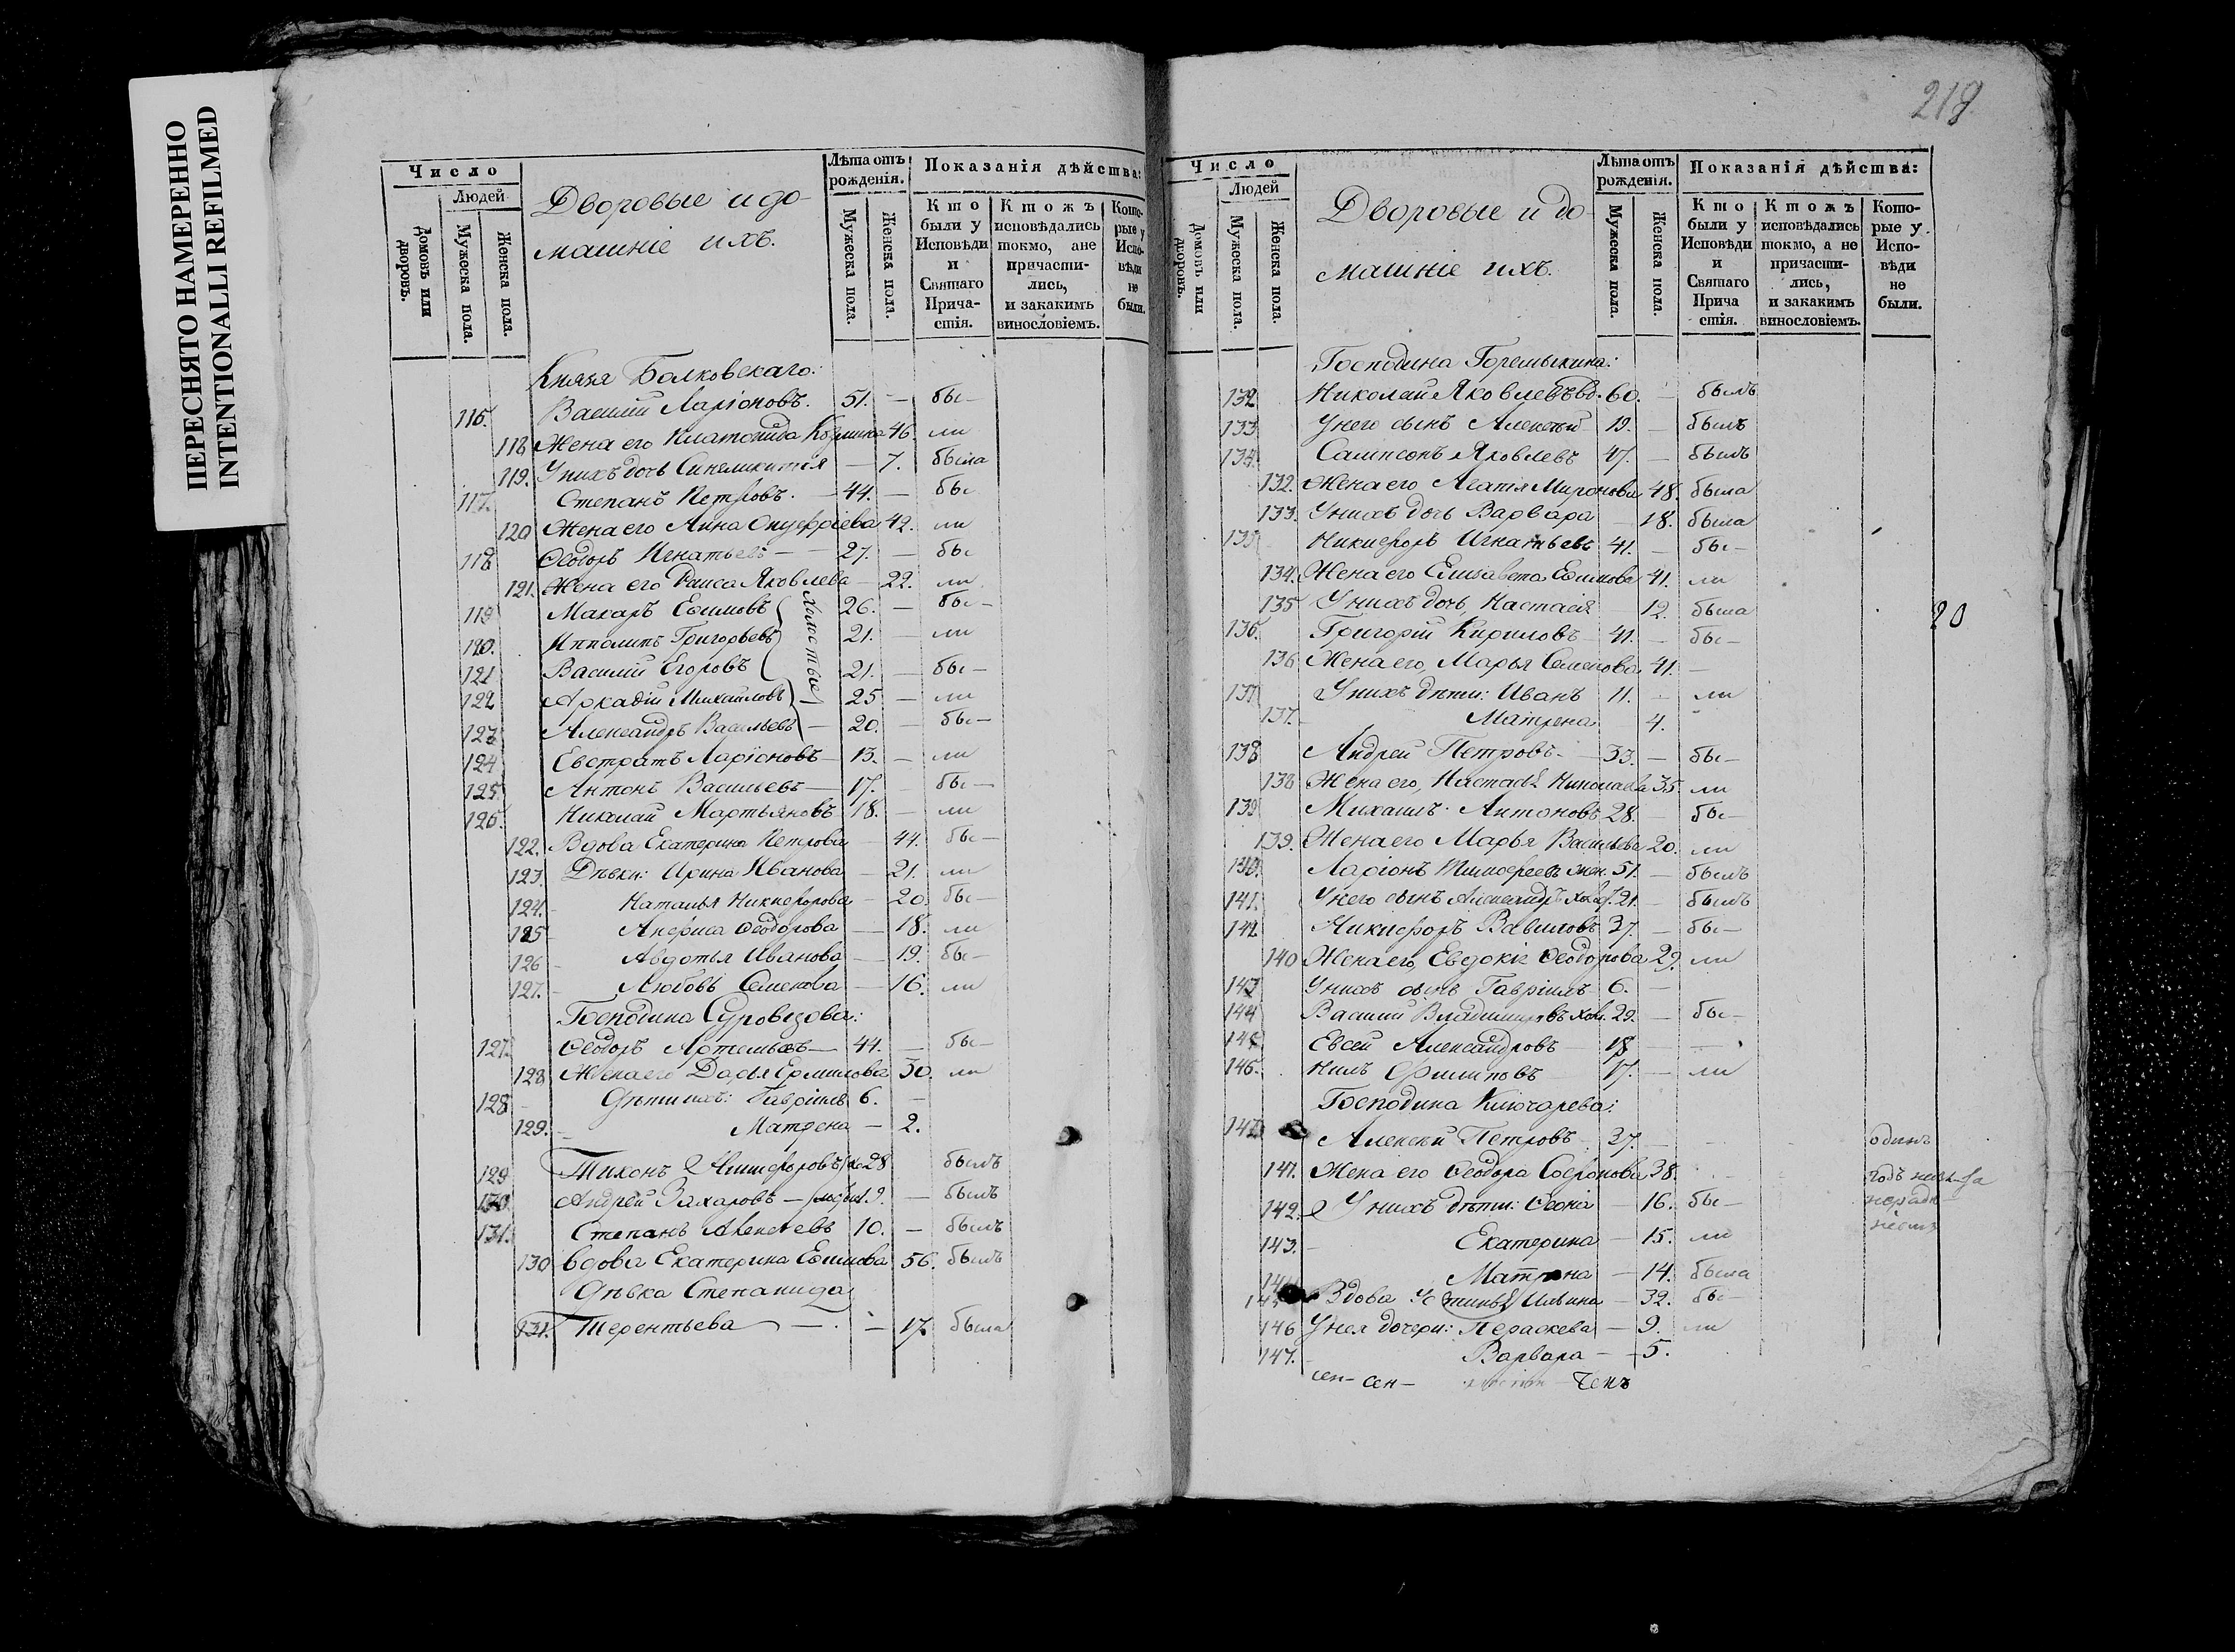 ПЕРЕСНЯТО НАМЕРЕННО
INTENTIONALLI REFILMED
Число
Людей
Домовъ или дворовъ.
Мужеска пола.
Женска пола.
Дворовые и до-
машніе ихъ.
Лѣта отъ рожденія.
Мужеска пола.
Женска пола.
Показанія дѣйства:
Кто были у Исповѣди и Святаго Прича-стія.
Ктожъ исповѣдались токмо, ане причасти-лись, и закакимъ винословіемъ.
Кото-рые у Испо-вѣди не были.
Князя Болховскаго:
116. Василий Ларіоновъ. 51. — бы—
118 Жена его Клатонида 46. ли
119. У нихъ дочь — 7. была
117. Степанъ Петровъ. — 44. — бы
120 Жена его Анна Онуфріева 42. ли
118 Ѳеодоръ Игнатьевъ — 27. — бы
121. Жена его Раиса Яковлева — 22. ли
119 Макаръ Еѳимовъ 26. — бы—
Холостые
120. Ипполитъ Григорьевъ 21. — ли
121 Василий Егоровъ 21. — бы—
122 Аркадій Михайловъ 25 — ли
123 Александръ Васильевъ 20. — бы—
124 Евстратъ Ларіоновъ 13. — ли
125. Антонъ Васильевъ 17. бы—
126. Николай Мартьяновъ 18. — ли
122. Вдова Екатерина Петрова 44. бы—
123. Дѣвки: Ирина Иванова — 21. ли
124. Наталья Никифорова — 20. бы—
125 Анфиса Ѳеодорова — 18. ли
126 Авдотья Иванова — 19. бы—
127. Любовь Семенова — 16. ли
Господина Суровцова:
127. Ѳеодоръ Артемьевъ — 44. — бы—
128 Жена его Дарья Ермилова 30. ли
128 Дѣти ихъ: Гавріилъ 6. —
129. Матрена — 2.
129 Тихонъ Никифоровъ 28 былъ
130. Андрей Захаровъ — 19. — былъ
131. Степанъ Алексѣевъ 10. — былъ
130 Вдова Екатерина Еѳимова 56. былъ
Дѣвка Степанида
131. Терентьева — 17. была
218
Число
Людей
Домовъ или дворовъ.
Мужеска пола.
Женска пола.
Дворовые и до
машніе ихъ.
Лѣта отъ рожденія.
Мужеска пола.
Женска пола.
Показанія дѣйства:
Кто были у Исповѣди и Святаго Прича стія.
Ктожъ исповѣдались токмо, а не причасти-лись, и закакимъ винословіемъ.
Кото-рые у Испо-вѣди не были.
Господина Горемыкина:
132 Николай Яковлевъ вд. 60. — былъ
133 У него сынъ Алексѣй 19. — былъ
134. Сампсонъ Яковлевъ 47. — былъ
132. Жена его Агатія Миронова 48. была
133. У нихъ дочь Варвара — 18. была
135 Никифоръ Игнатьевъ 41. — бы—
134. Жена его Елисавета Еѳимова 41. ли
135 У нихъ дочь, Настасія 12. была
20
136. Григорій Кириловъ 41. — бы—
136 Жена его, Марья Семенова 41. —
137 У нихъ дѣти: Иванъ 11. — ли
137. Матрена 4.
138 Андрей Петровъ. — 33. — бы—
138 Жена его, Настасья Николаева 35. ли
139 Михаилъ Антоновъ 28. — бы—
139. Жена его Марья Васильева 20. ли
140. Ларіонъ Тимоѳеевъ жен. 51. — былъ
141. У него сынъ Александръ 21. — былъ
142 Никифоръ Вавиловъ 37. — бы—
140 Жена его, Евдокія Ѳеодорова 29. ли
143 У нихъ сынъ Гавріилъ 6. —
144 Василий Владимировъ хол. 29. — бы—
145 Евсей Александровъ 18 —
146. Нилъ Филиповъ 17. — ли
Господина Ключарева:
147 Алексѣй Петровъ 37. — одинъ
141. Жена его Ѳеодора Софронова 38. годъ
142. У нихъ дѣти: — 16. бы—
143. Екатерина — 15. ли
Матрона — 14. была
Вдова Устинья Ильина — 32. бы—
146 У нея дочери: Параскева — 9. ли
147. Варвара — 5.